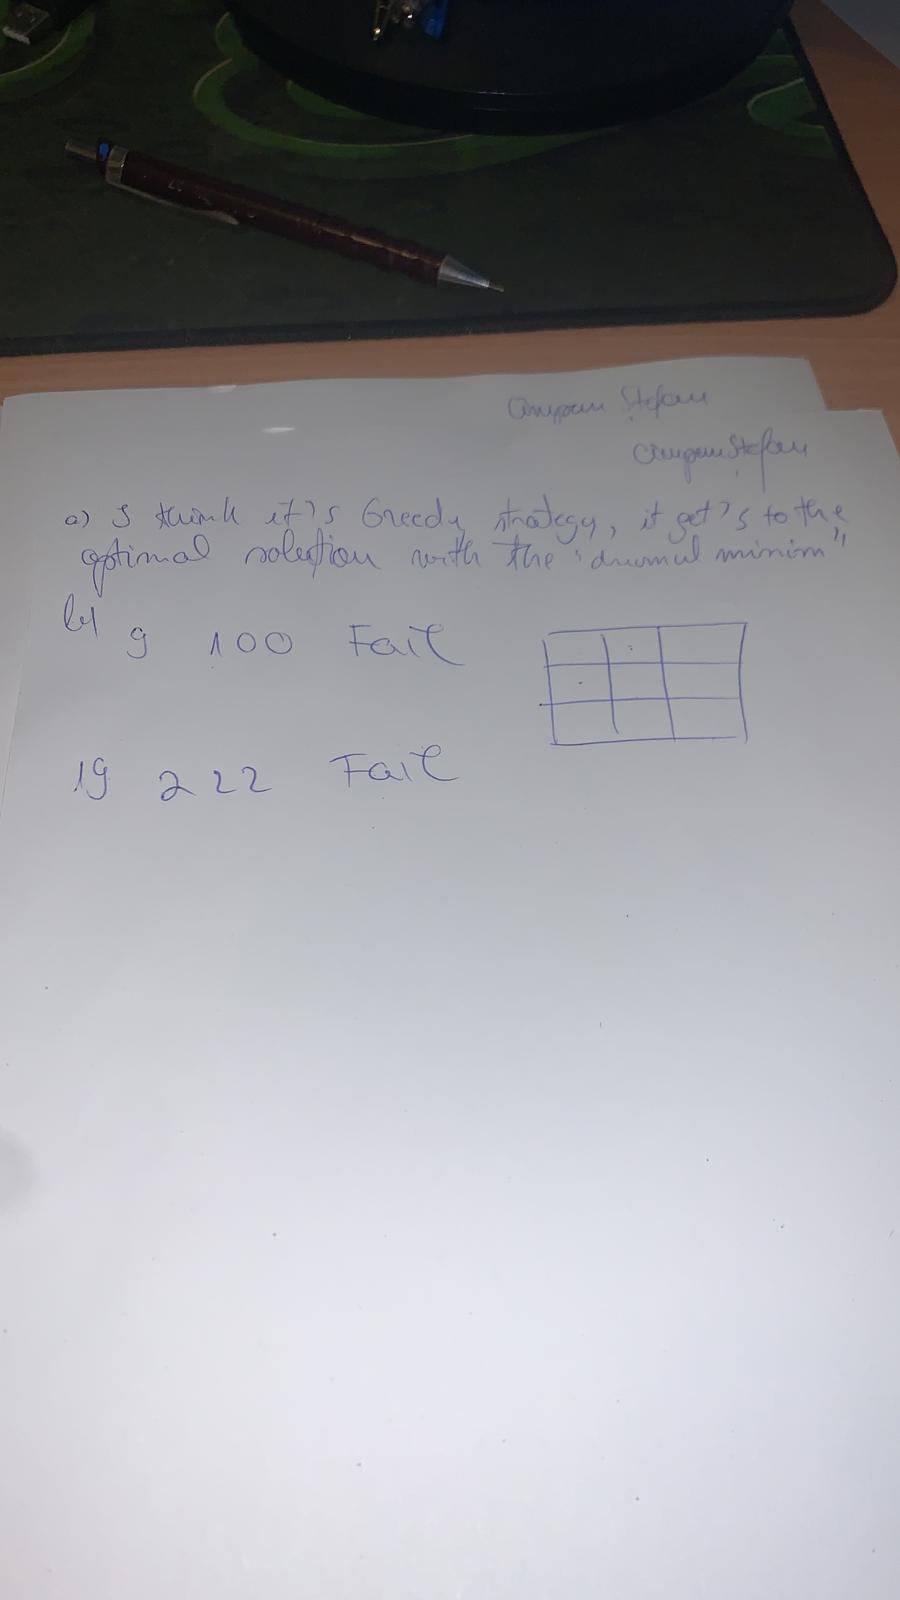 Stefan
Stefan
a) I think it's Greedy strategy, it get's to the
optimal solution with the "drumul minim"
b)
9 100 Fail
19 222 Fail